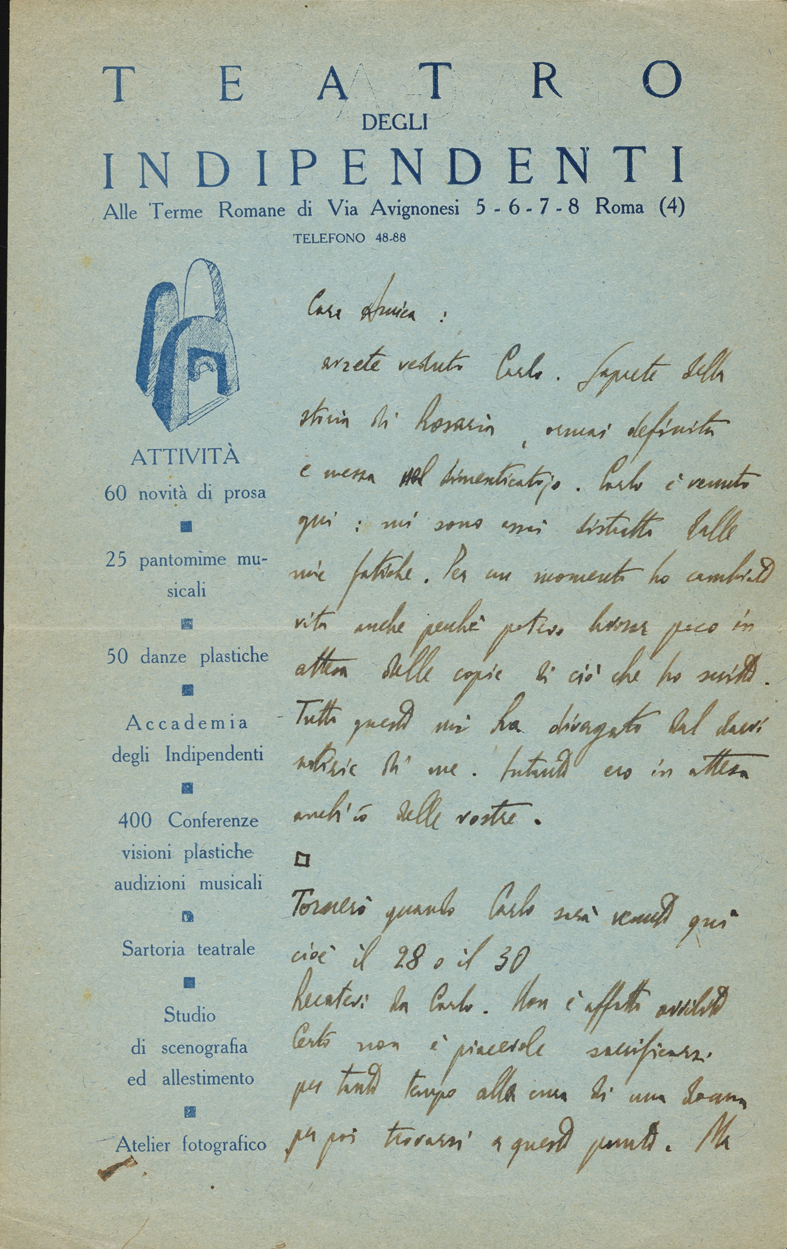 TEATRO
DEGLI
INDIPENDENTI
Alle Terme Romane di Via Avignonesi 5-6-7-8 Roma (4)
TELEFONO 48-88
ATTIVITÀ
60 novità di prosa
25 pantomime mu-
sicali
50 danze plastiche
Accademia
degli Indipendenti
400 Conferenze
visioni plastiche
audizioni musicali
Sartoria teatrale
Studio
di scenografia
ed allestimento
Atelier fotografico
Cara Amica :
avrete veduto Carlo. Saprete della
storia di Rosaria, ormai definita
e messa nel dimenticatojo. Carlo è venuto
qui : mi sono assai distratto dalle
mie fatiche. Per un momento ho cambiato
vita anche perchè potevo poco in
attesa delle copie di ciò che ho scritto.
Tutto questo mi ha divagato dal darvi
notizie di me. Intanto ero in attesa
anch'io delle vostre.
Tornerò quando Carlo sarà venuto qui
cioè il 28 o il 30
Recatevi da Carlo. Non è affatto avvilito
Certo non è piacevole sacrificarsi
per tanto tempo alla cura di una donna
per poi trovarsi a questo punto. Ma